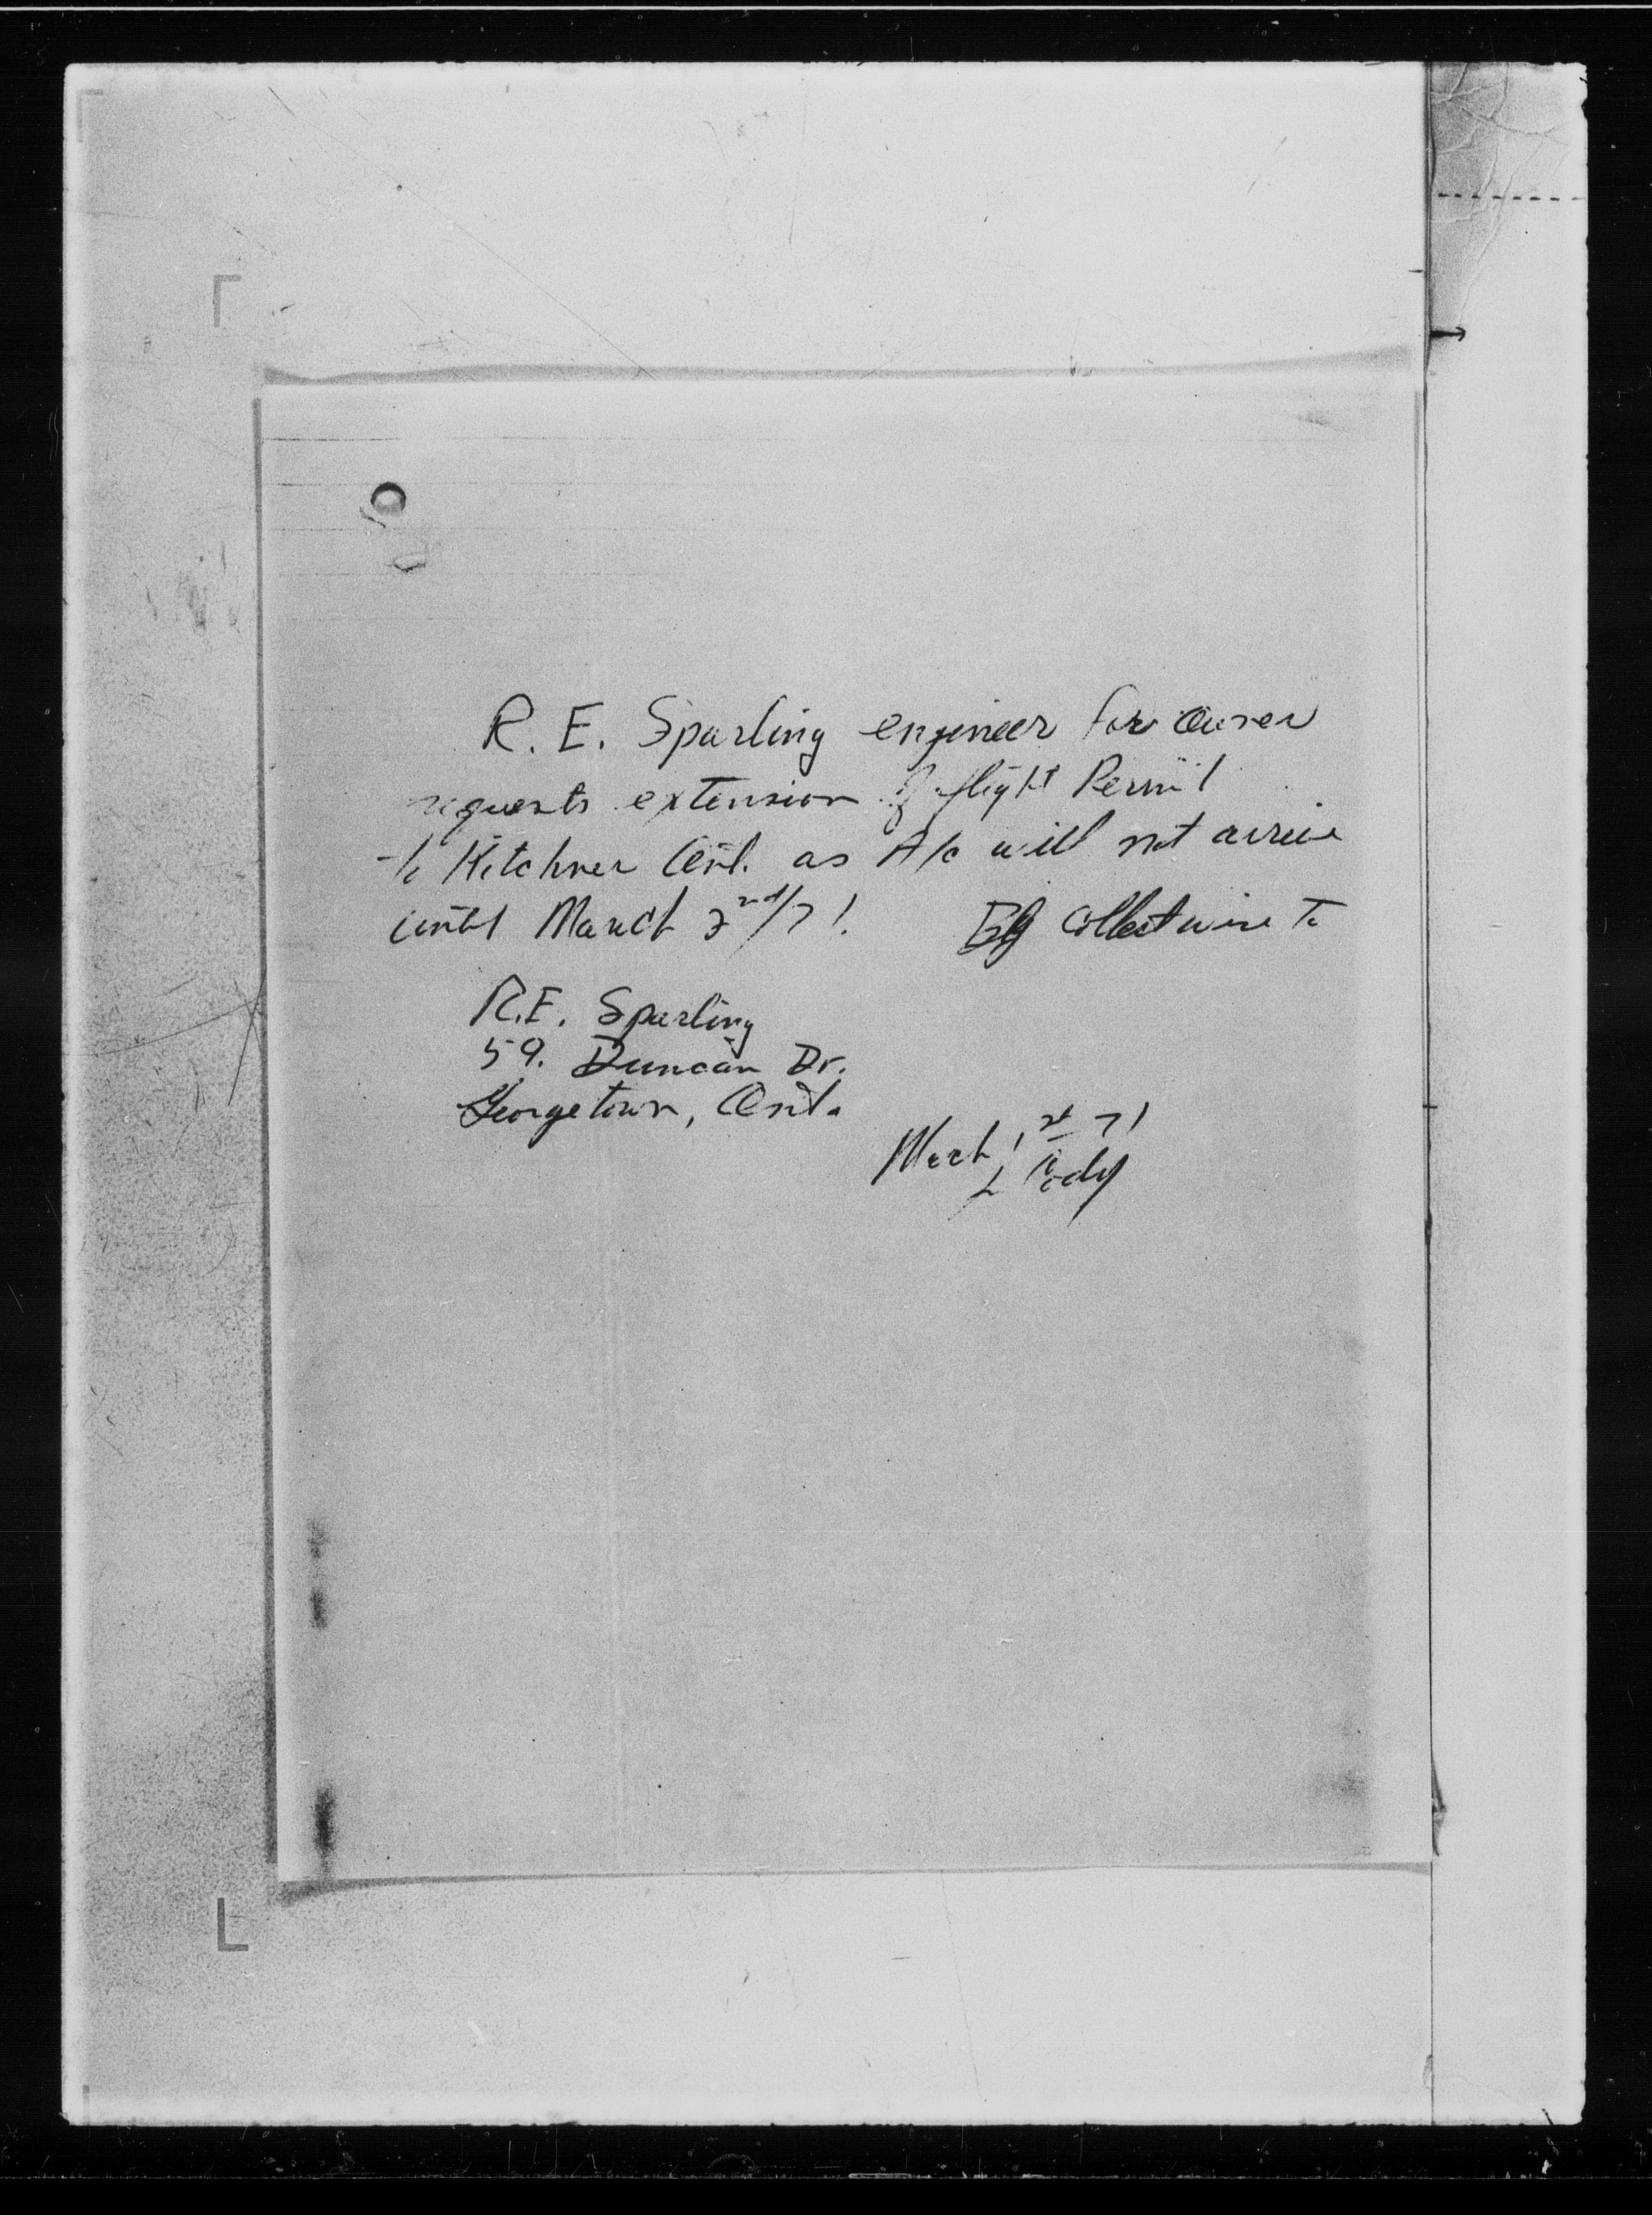 R. E. Sparling engineer for Owner
requests extension of flight Permit
to Kitchner Ont. as A/c will not arrive
until March 2nd/71. By Collect wire to
R.E. Sparling
59. Duncan Dr.
Georgetown, Ont.
March 1st 71
L Cody